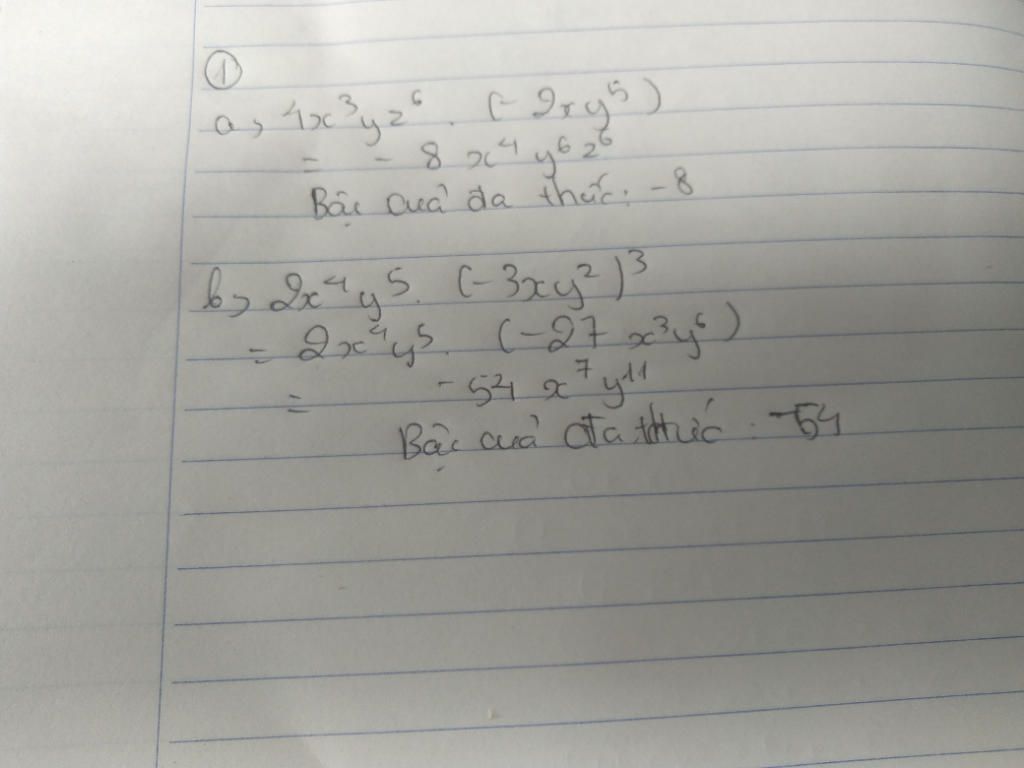 ①
a, 4x³yz⁶ . (-2xy⁵)
= - 8 x⁴ y⁶ z⁶
Bậc cuả đa thức: -8
b, 2x⁴y⁵. (-3xy²)³
= 2x⁴y⁵. (-27 x³y⁶)
= -54 x⁷y¹¹
Bậc cuả đa thức : -54